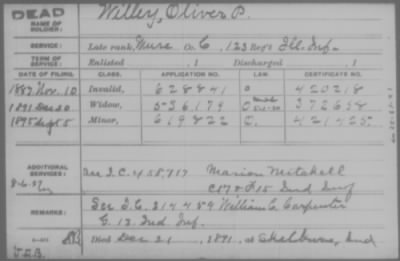 DEAD
NAME OF SOLDIER: Willey, Oliver P.
SERVICE: Late rank, Musc Co. C, 123 Reg't Ill. Inf.
TERM OF SERVICE: Enlisted , 1 Discharged , 1
DATE OF FILING. CLASS. APPLICATION NO. LAW. CERTIFICATE NO.
1887 Nov. 10 Invalid, 628841 O 420218
1891 Dec 30 Widow, 536179 O 372658
1895 Sept 5 Minor, 619822 O. 421425
ADDITIONAL SERVICES: See I.C. 458,717 Marion Mitchell
C 17 & F 15 Ind Inf
REMARKS: See I.C. 214459 William C. Carpenter
G. 13. Ind. Inf.
Died Dec 21, 1891, at Shelburn, Ind